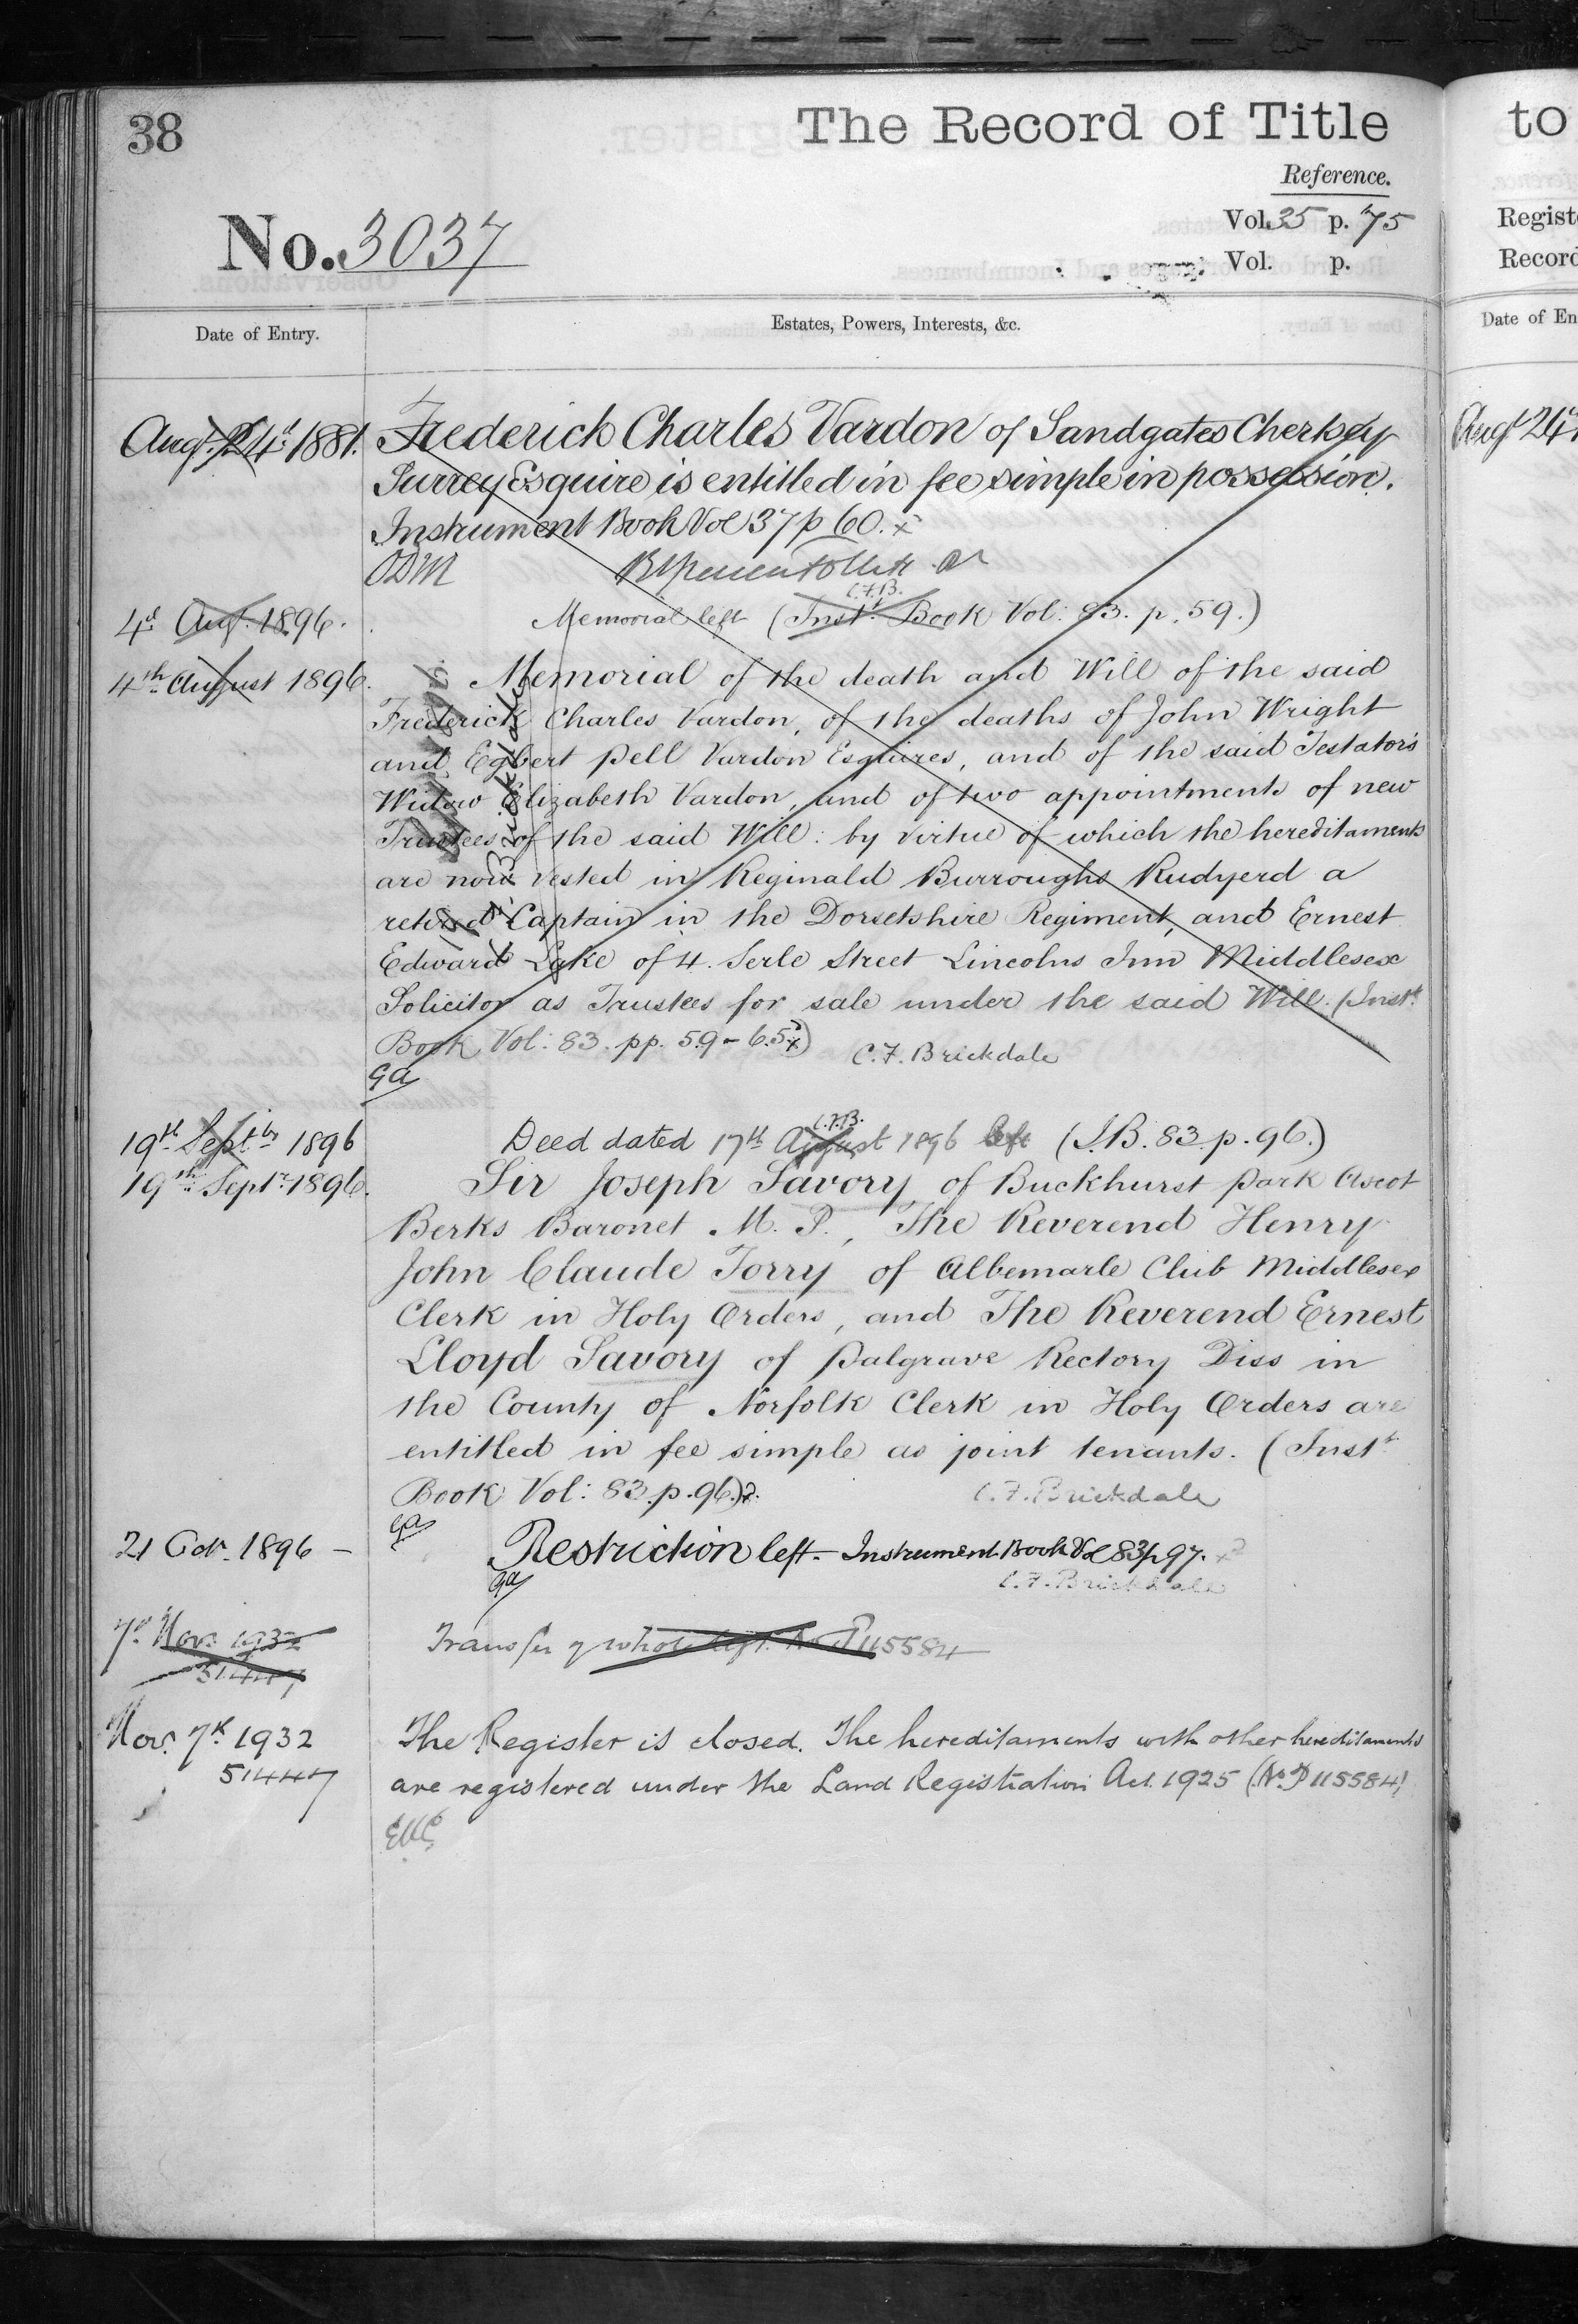 38
The Record of Title
to
Reference.
No. 3037
Vol. 35 p. 75
Vol. p.
Regist
Record
Date of Entry.
Estates, Powers, Interests, &c.
Date of En
Augt. 24th 1881. Frederick Charles Vardon of Sandgates Chertsey
Augt 24
Surrey Esquire is entitled in fee simple in possession.
Instrument Book Vol 37 p 60. x
ODM
C.F.B.
4th Aug. 1896. Memorial left (Inst. Book Vol: 83. p. 59.)
4th August 1896. Memorial of the death and Will of the said
Frederick Charles Vardon, of the deaths of John Wright
and Egbert Pell Vardon Esquires, and of the said Testator's
Widow Elizabeth Vardon, and of two appointments of new
Trustees of the said Will: by virtue of which the hereditaments
are now vested in Reginald Burroughs Rudyerd a
retired Captain in the Dorsetshire Regiment, and Ernest
Edward Lake of 4. Serle Street Lincolns Inn Middlesex
Solicitor as Trustees for sale under the said Will. (Instt.
Book Vol: 83. pp. 59-65 x) C.F. Brickdale
GA
C.F.B.
19th Septbr 1896 Deed dated 17th August 1896 left (I.B. 83. p. 96.)
19th Septr. 1896. Sir Joseph Savory of Buckhurst Park Ascot
Berks Baronet M. P., The Reverend Henry
John Claude Torry of Albemarle Club Middlesex
Clerk in Holy Orders, and The Reverend Ernest
Lloyd Savory of Palgrave Rectory Diss in
the County of Norfolk Clerk in Holy Orders are
entitled in fee simple as joint tenants. (Instt
Book Vol: 83. p. 96.) C.F. Brickdale
GA
21 Octr. 1896 – Restriction left – Instrument Book Vol 83 p 97.
GA C.F. Brickdale
7th Nov. 1932 Transfer of whole left. No P115584
51447
Nov. 7th 1932 The Register is closed. The hereditaments with other hereditaments
51447 are registered under the Land Registration Act. 1925 (No. P115584)